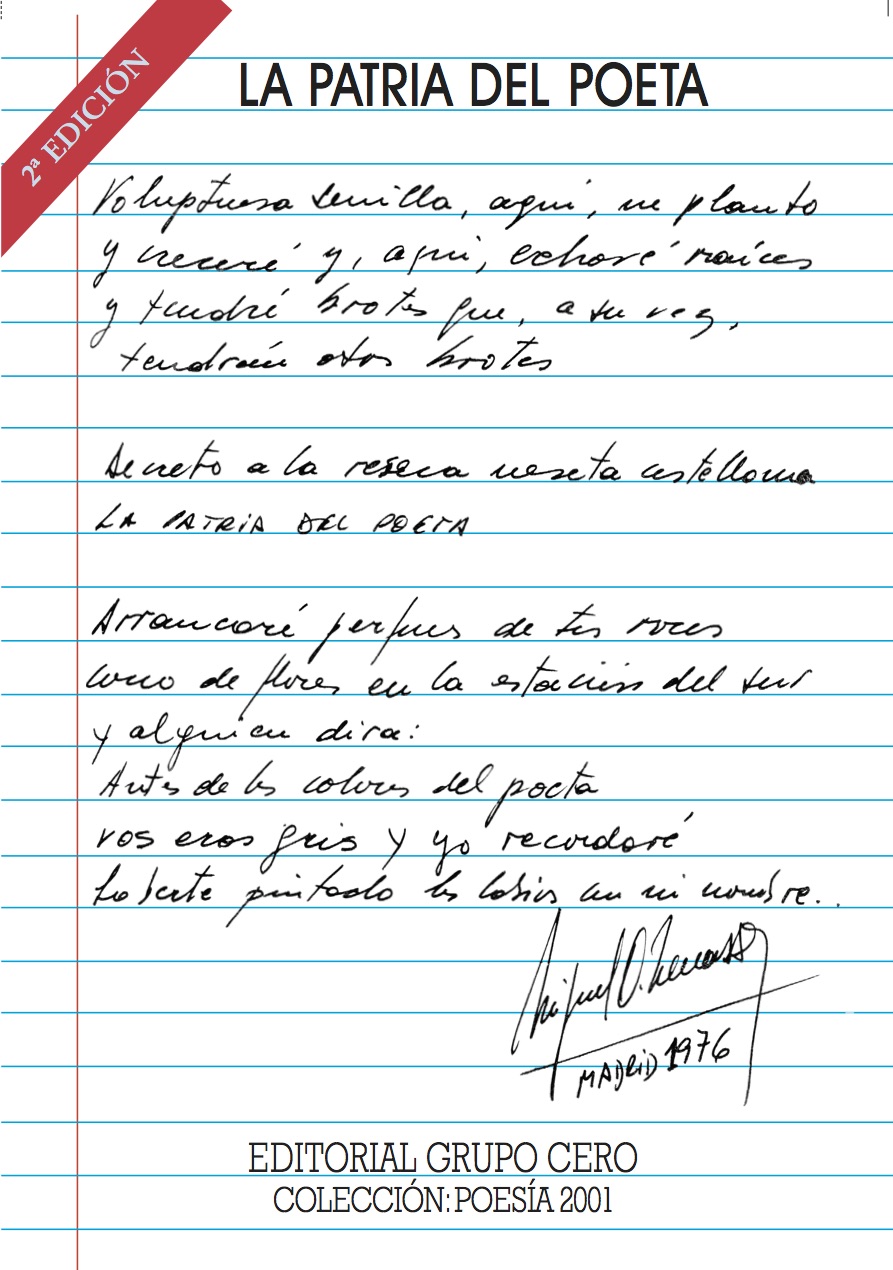 2ª EDICIÓN
LA PATRIA DEL POETA
Voluptuosa semilla, aquí, me planto
y creceré y, aquí, echaré raíces
y tendré brotes que, a su vez,
tendrán otros brotes
Decreto a la reseca meseta castellana
LA PATRIA DEL POETA
Arrancaré perfumes de tus voces
como de flores en la estación del sur
y alguien dira:
Antes de los colores del poeta
vos eras gris y yo recordaré
haberte pintado los labios con mi nombre..
Miguel O. Menassa
MADRID 1976
EDITORIAL GRUPO CERO
COLECCIÓN: POESÍA 2001